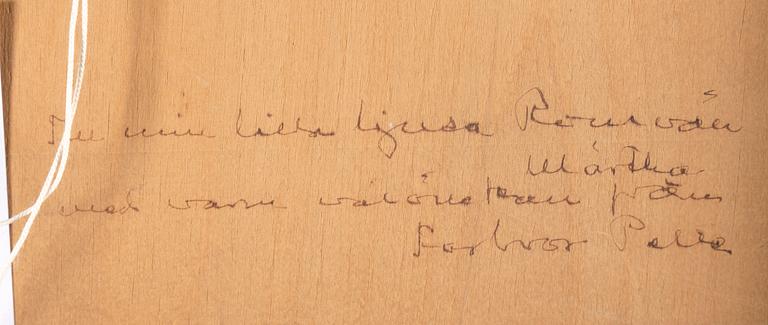 min lilla ljusa Romvän
Märtha
med varm välönskan från
Farbror Pelle